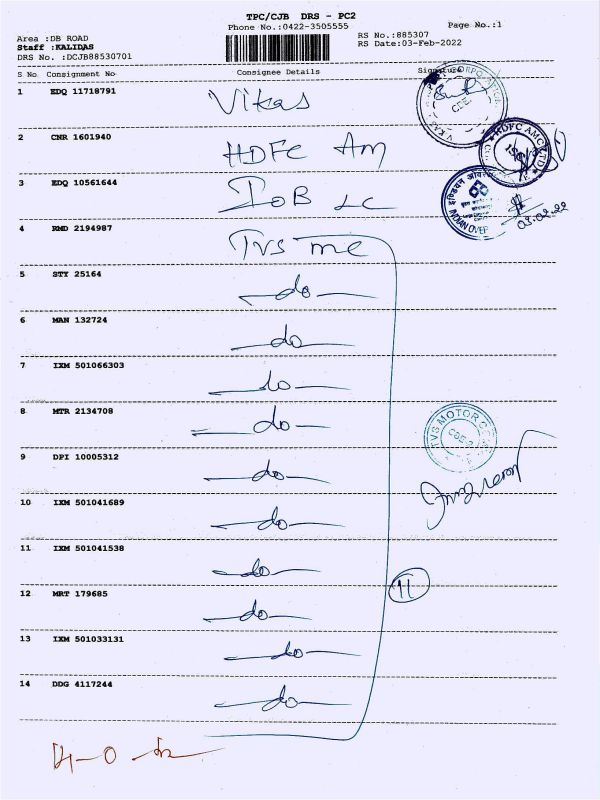 TPC/CJB DRS - PC2
Phone No.:0422-3505555
Page No.:1
Area :DB ROAD
Staff :KALIDAS
DRS No. :DCJB88530701
RS No.:885307
RS Date:03-Feb-2022
S No Consignment No Consignee Details Signature
1 EDQ 11718791 Vikas
2 CNR 1601940 HDFC Am
HDFC AMC LTD
3 EDQ 10561644 IOB LC
INDIAN OVER
03.02.22
4 RMD 2194987 TVS mc
5 STY 25164 -do-
6 MAN 132724 -do-
7 IXM 501066303 -do-
8 MTR 2134708 -do-
TVS MOTOR CO
9 DPI 10005312 -do-
10 IXM 501041689 -do-
11 IXM 501041538 -do-
11
12 MRT 179685 -do-
13 IXM 501033131 -do-
14 DDG 4117244 -do-